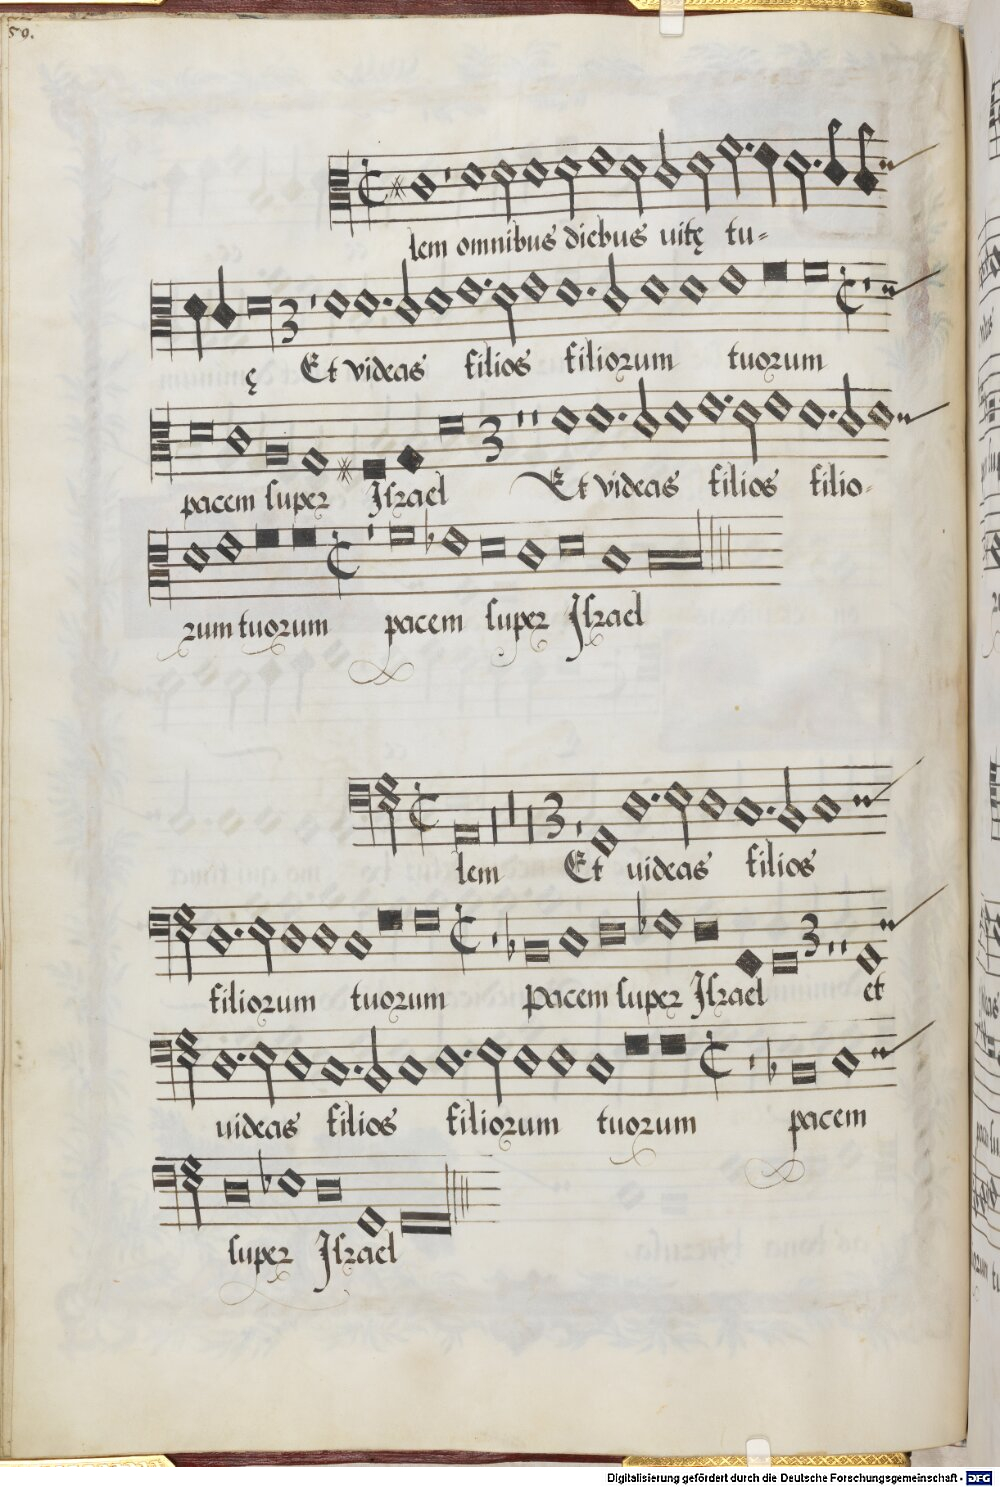 59.
lem omnibus diebus uitę tu=
ę Et videas filios filiorum tuorum
pacem super Israel Et videas filios filio=
rum tuorum pacem super Israel
lem Et uideas filios
filiorum tuorum pacem super Israel et
uideas filios filiorum tuorum pacem
super Israel
Digitalisierung gefördert durch die Deutsche Forschungsgemeinschaft - DFG